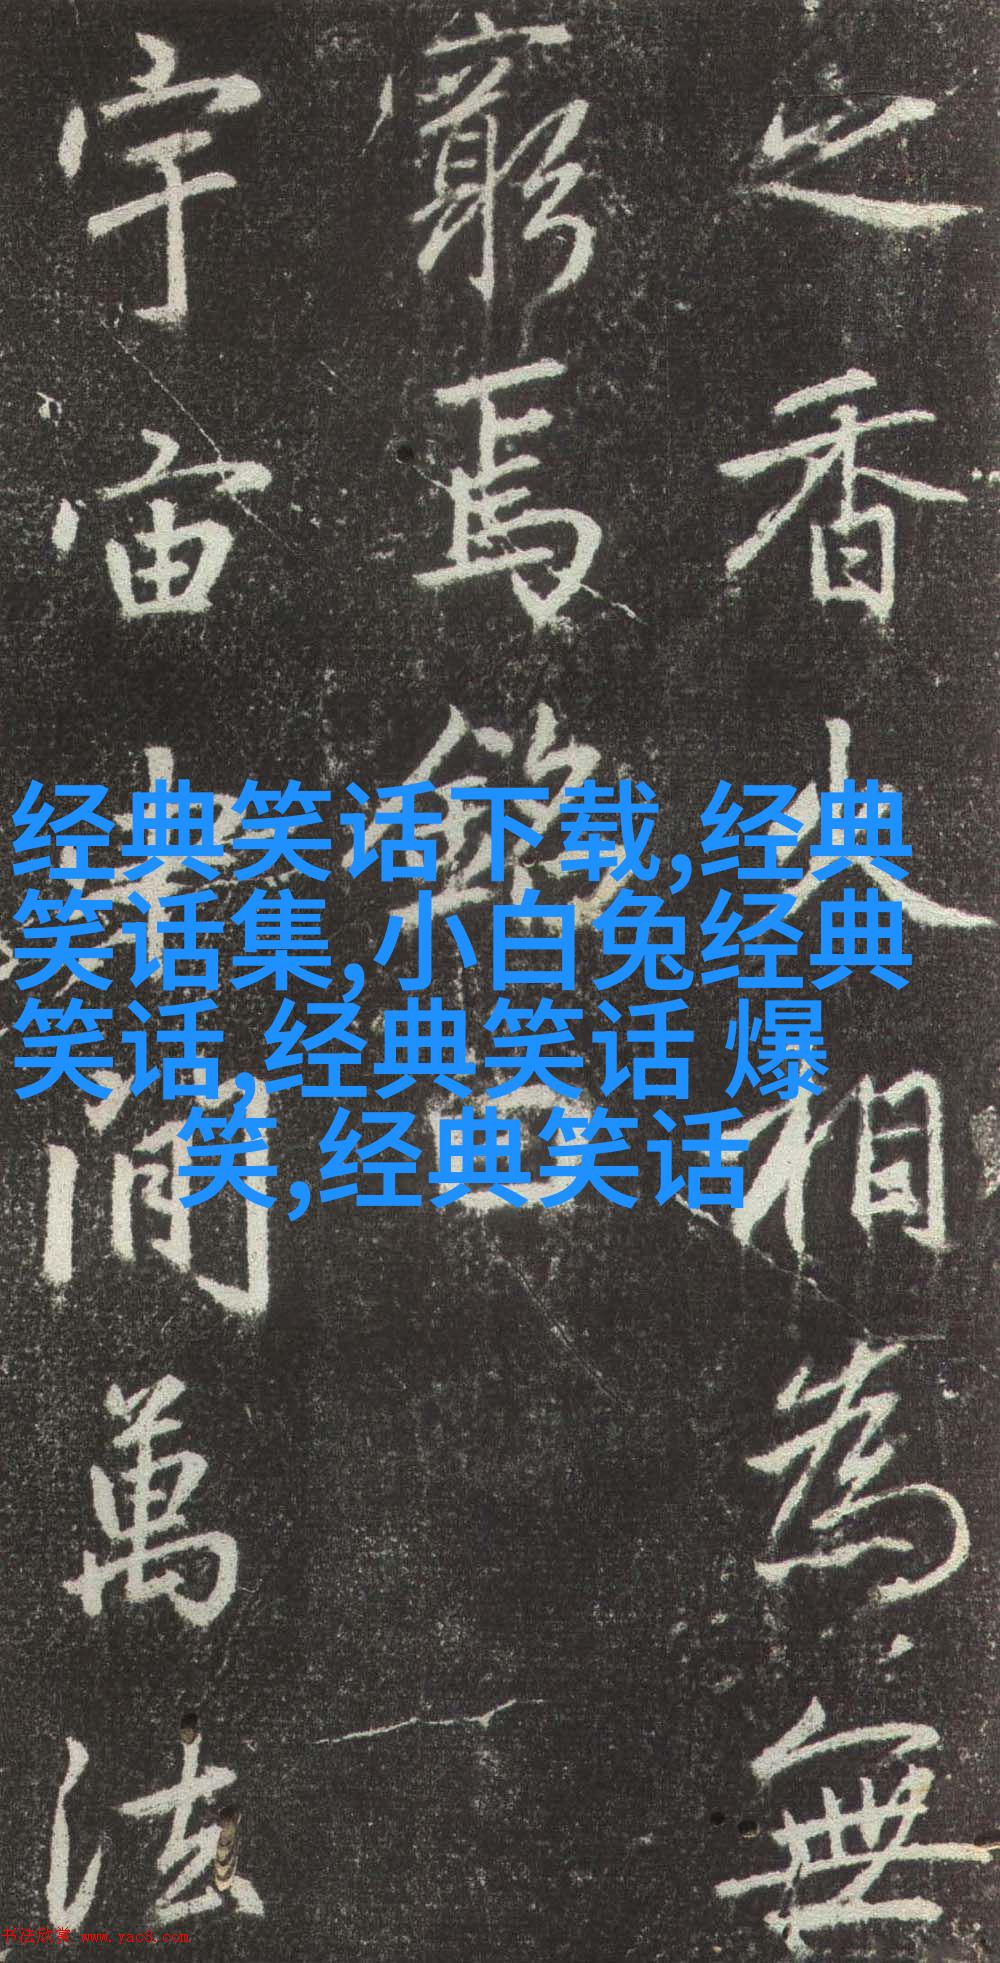 之香大相為無
窮焉
宇宙
間萬法
经典笑话下载,经典
笑话集,小白兔经典
笑话,经典笑话 爆
笑,经典笑话
书法欣赏 www.yac8.com